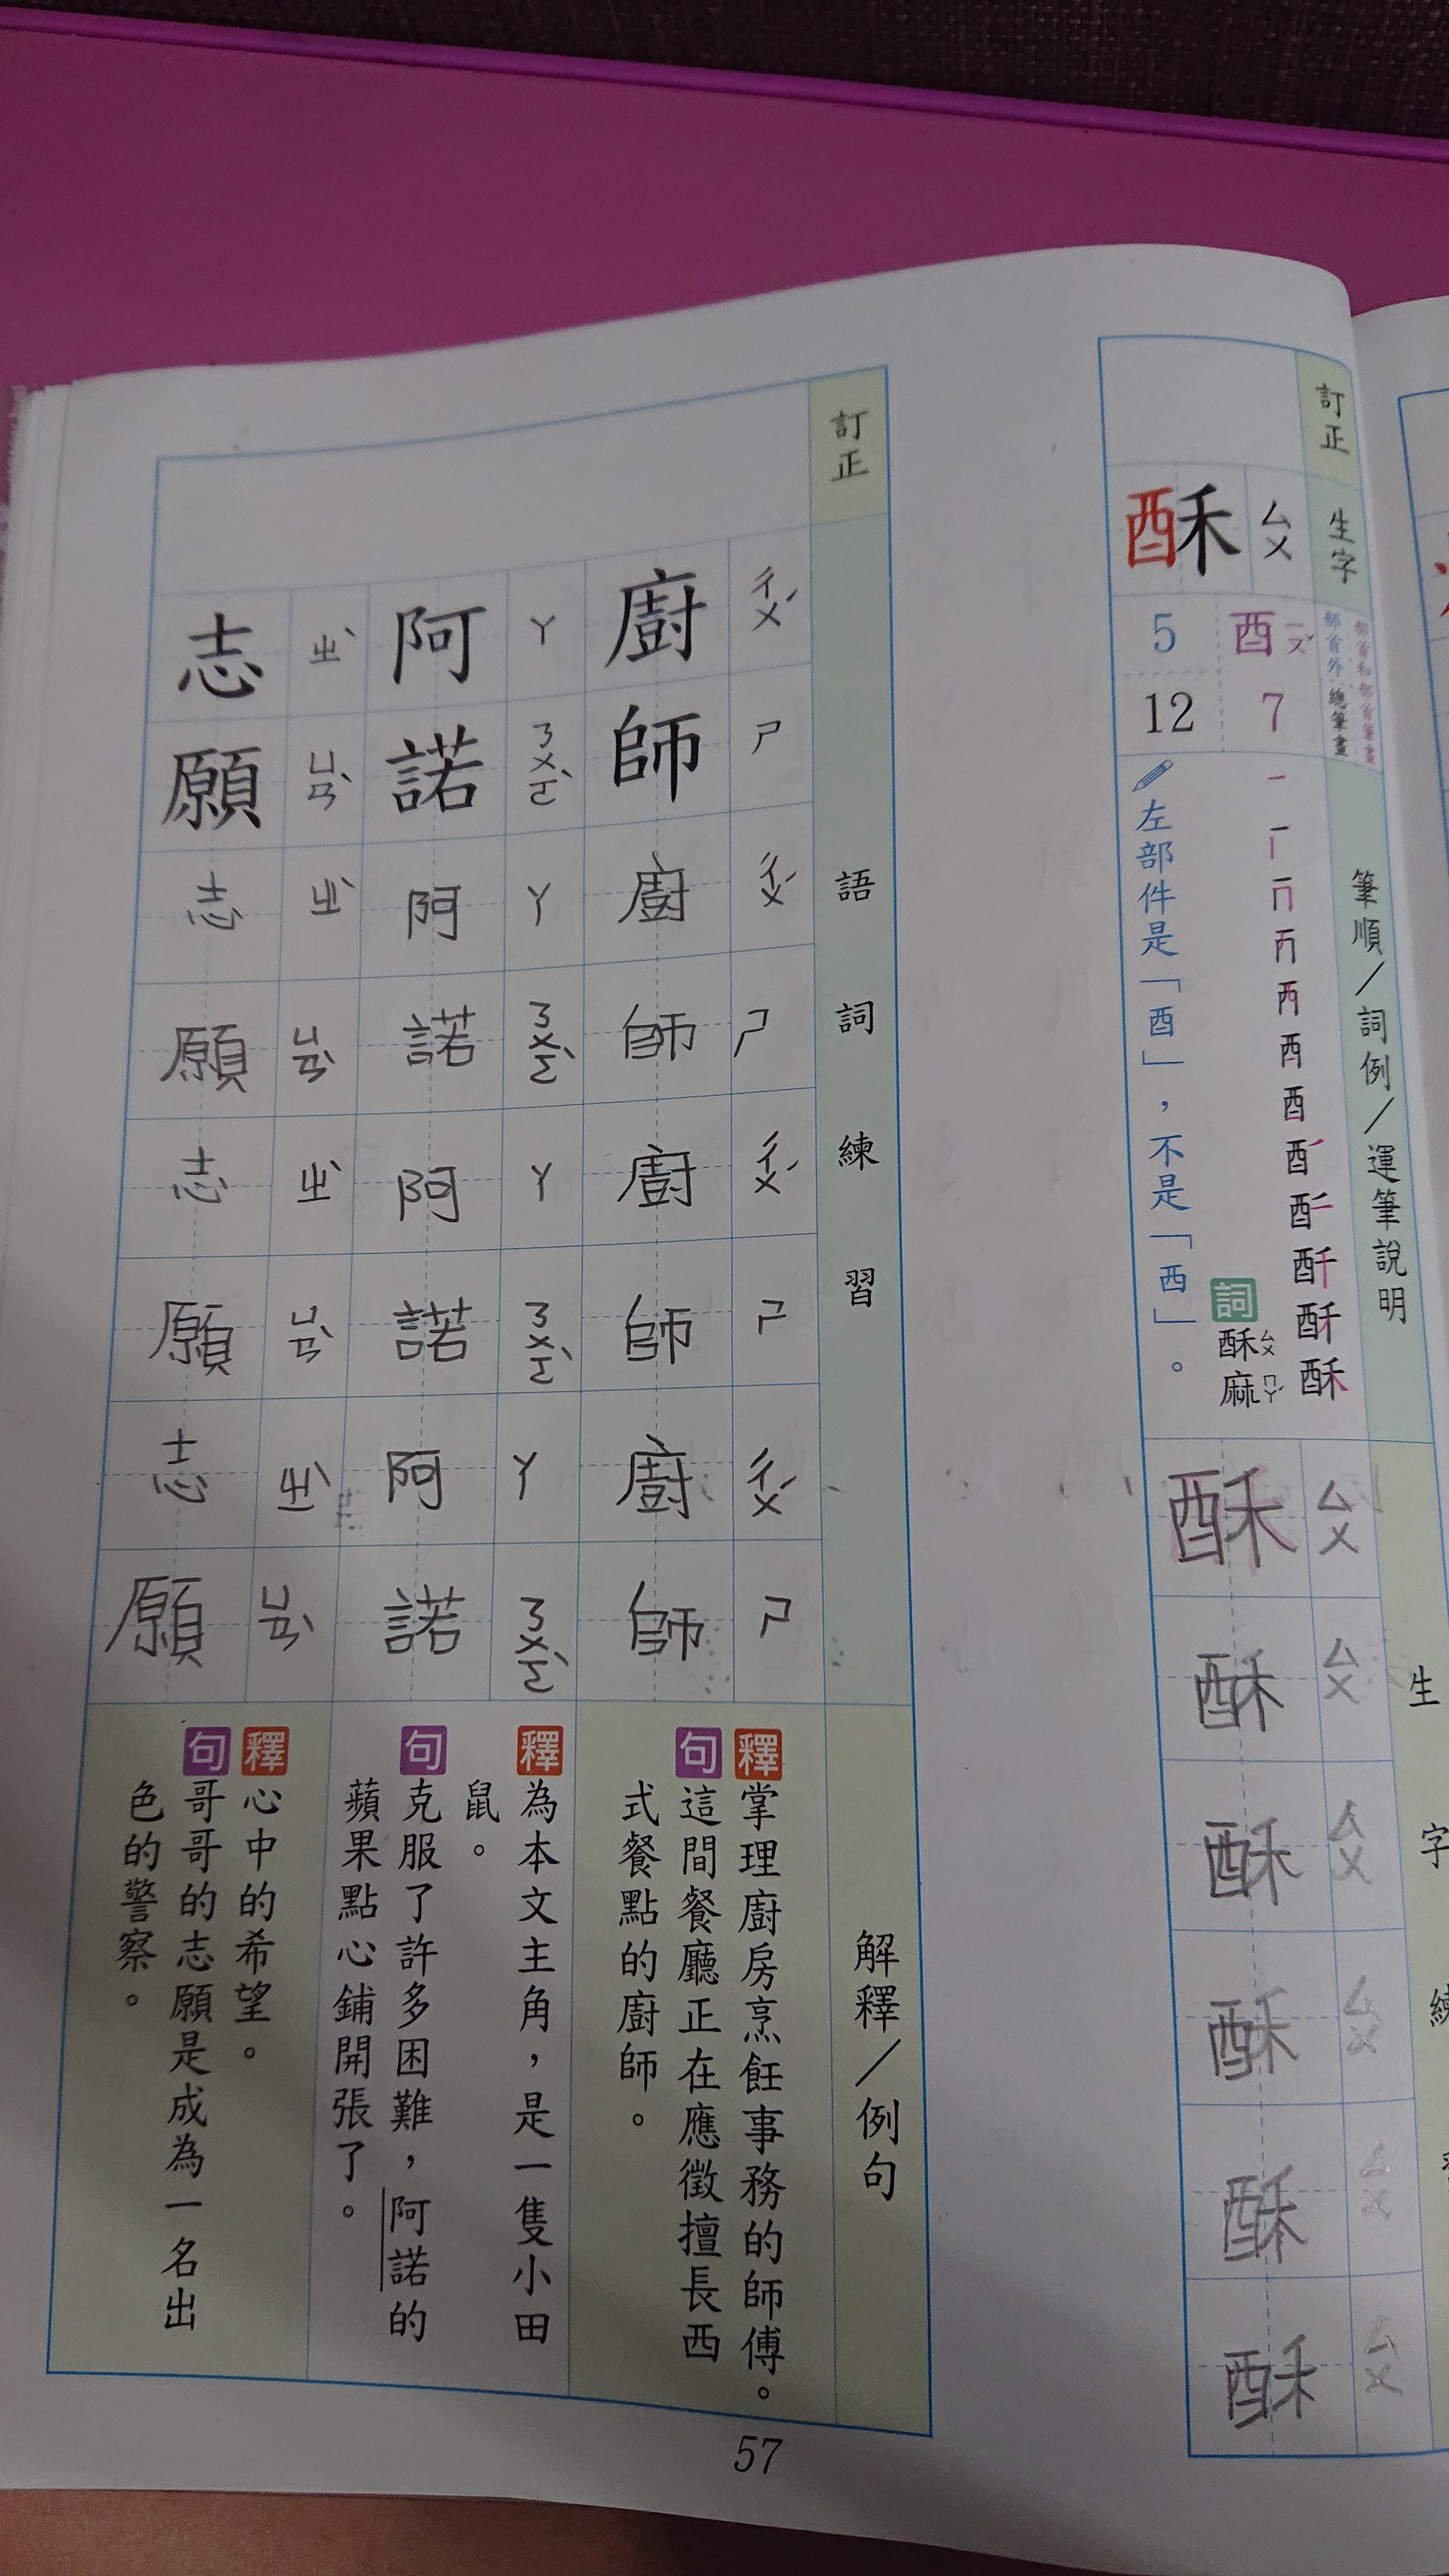 訂正
生字
部首和部首筆畫
部首外
總筆畫
筆順／詞例／運筆說明
生
字
酥
ㄙㄨ
酉
ㄧㄡˇ
7
5
12
酥
詞
酥ㄙㄨ麻ㄇㄚˊ
左部件是「酉」，不是「西」。
酥 ㄙㄨ
酥 ㄙㄨ
酥 ㄙㄨ
酥 ㄙㄨ
酥 ㄙㄨ
酥 ㄙㄨ
訂正
語詞練習
解釋／例句
ㄔㄨˊ ㄕ ㄔㄨˊ ㄕ ㄔㄨˊ ㄕ ㄔㄨˊ ㄕ
廚師廚師廚師廚師
釋 掌理廚房烹飪事務的師傅。
句 這間餐廳正在應徵擅長西
式餐點的廚師。
ㄚ ㄋㄨㄛˋ ㄚ ㄋㄨㄛˋ ㄚ ㄋㄨㄛˋ ㄚ ㄋㄨㄛˋ
阿諾阿諾阿諾阿諾
釋 為本文主角，是一隻小田
鼠。
句 克服了許多困難，阿諾的
蘋果點心鋪開張了。
ㄓˋ ㄩㄢˋ ㄓˋ ㄩㄢˋ ㄓˋ ㄩㄢˋ ㄓˋ ㄩㄢˋ
志願志願志願志願
釋 心中的希望。
句 哥哥的志願是成為一名出
色的警察。
57